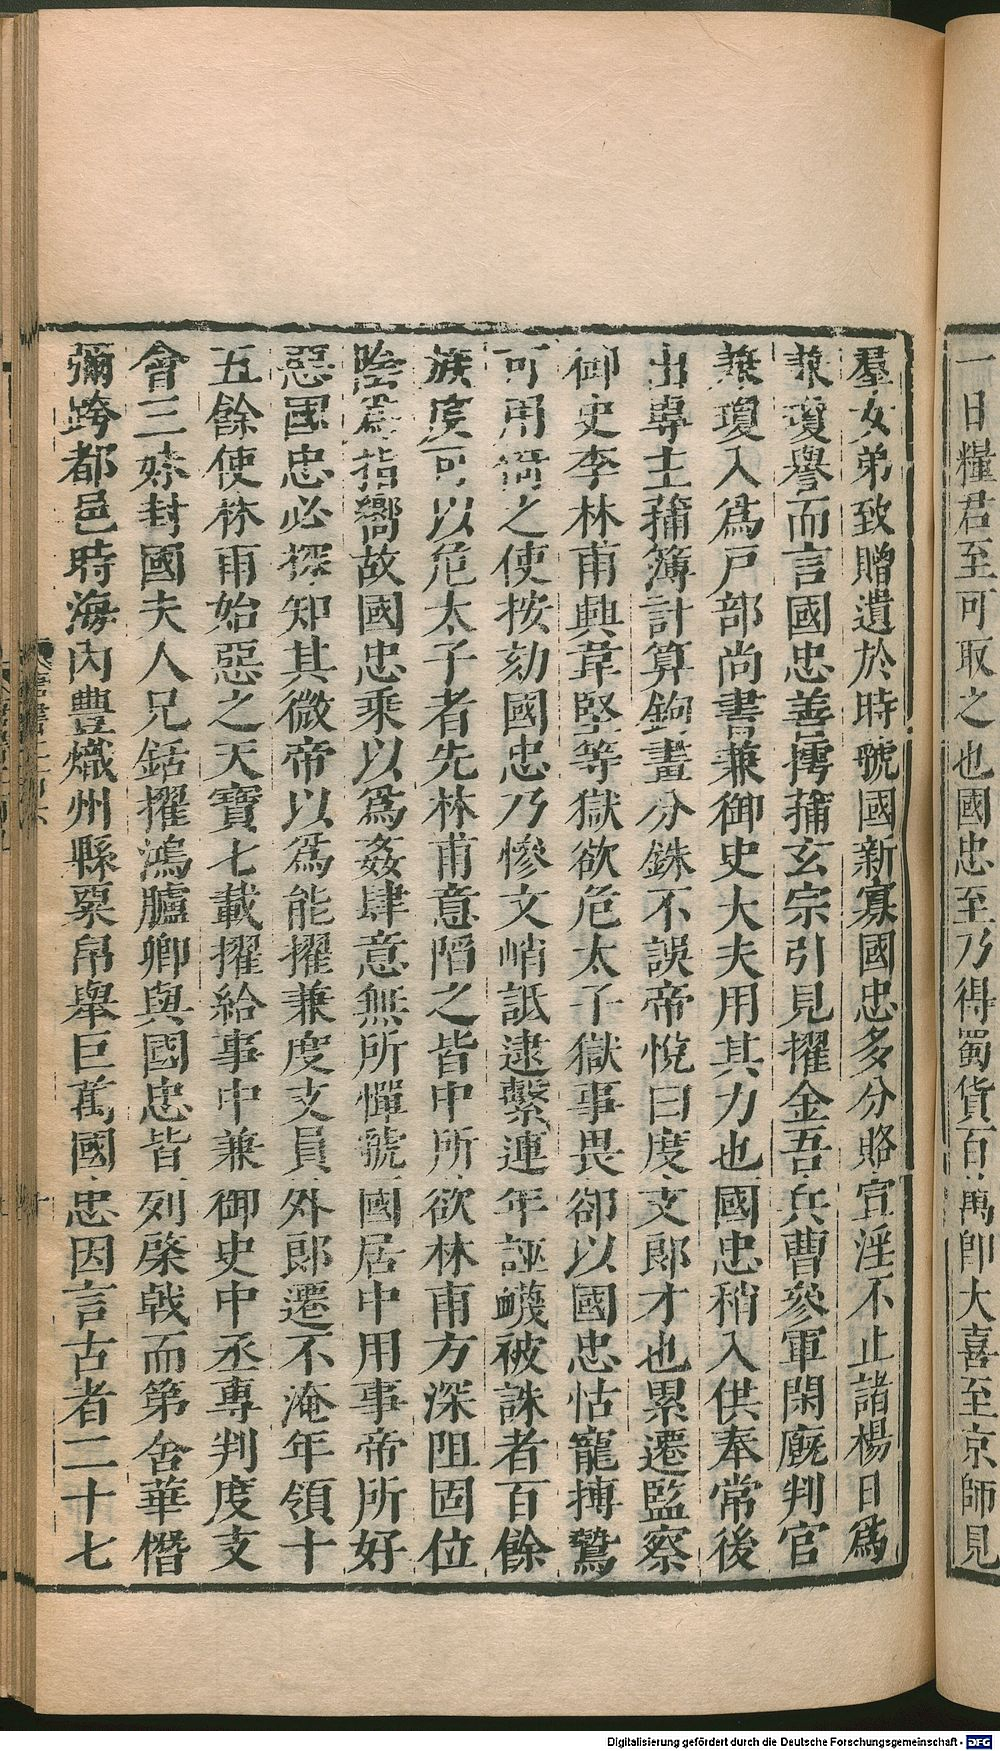 一日糧君至可取之也國忠至乃得蜀貨百萬即大喜至京師見
羣女弟致贈遺於時虢國新寡國忠多分賂宣淫不止諸楊日爲
兼瓊譽而言國忠善摴蒱玄宗引見擢金吾兵曹參軍閑廄判官
兼瓊入爲戸部尚書兼御史大夫用其力也國忠稍入供奉常後
出專主蒱簿計算鉤畫分銖不誤帝悅曰度支郎才也累遷監察
御史李林甫興韋堅等獄欲危太子獄事畏卻以國忠怙寵搏鷙
可用倚之使按劾國忠乃慘文峭詆逮繫連年誣衊被誅者百餘
族度可以危太子者先林甫意陷之皆中所欲林甫方深阻固位
陰爲指嚮故國忠乘以爲姦肆意無所憚虢國居中用事帝所好
惡國忠必探知其微帝以爲能擢兼度支員外郎遷不淹年領十
五餘使林甫始惡之天寶七載擢給事中兼御史中丞專判度支
會三妹封國夫人兄銛擢鴻臚卿與國忠皆列棨戟而第舍華僭
彌跨都邑時海內豐熾州縣粟帛舉巨萬國忠因言古者二十七
Digitalisierung gefördert durch die Deutsche Forschungsgemeinschaft - DFG